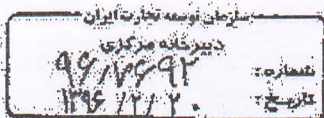 سازمان توسعه تجارت ایران
دبیرخانه مرکزی
شماره: ۹۶/۱۷۶۹۳
تاریخ: ۱۳۹۶/۲/۲۰